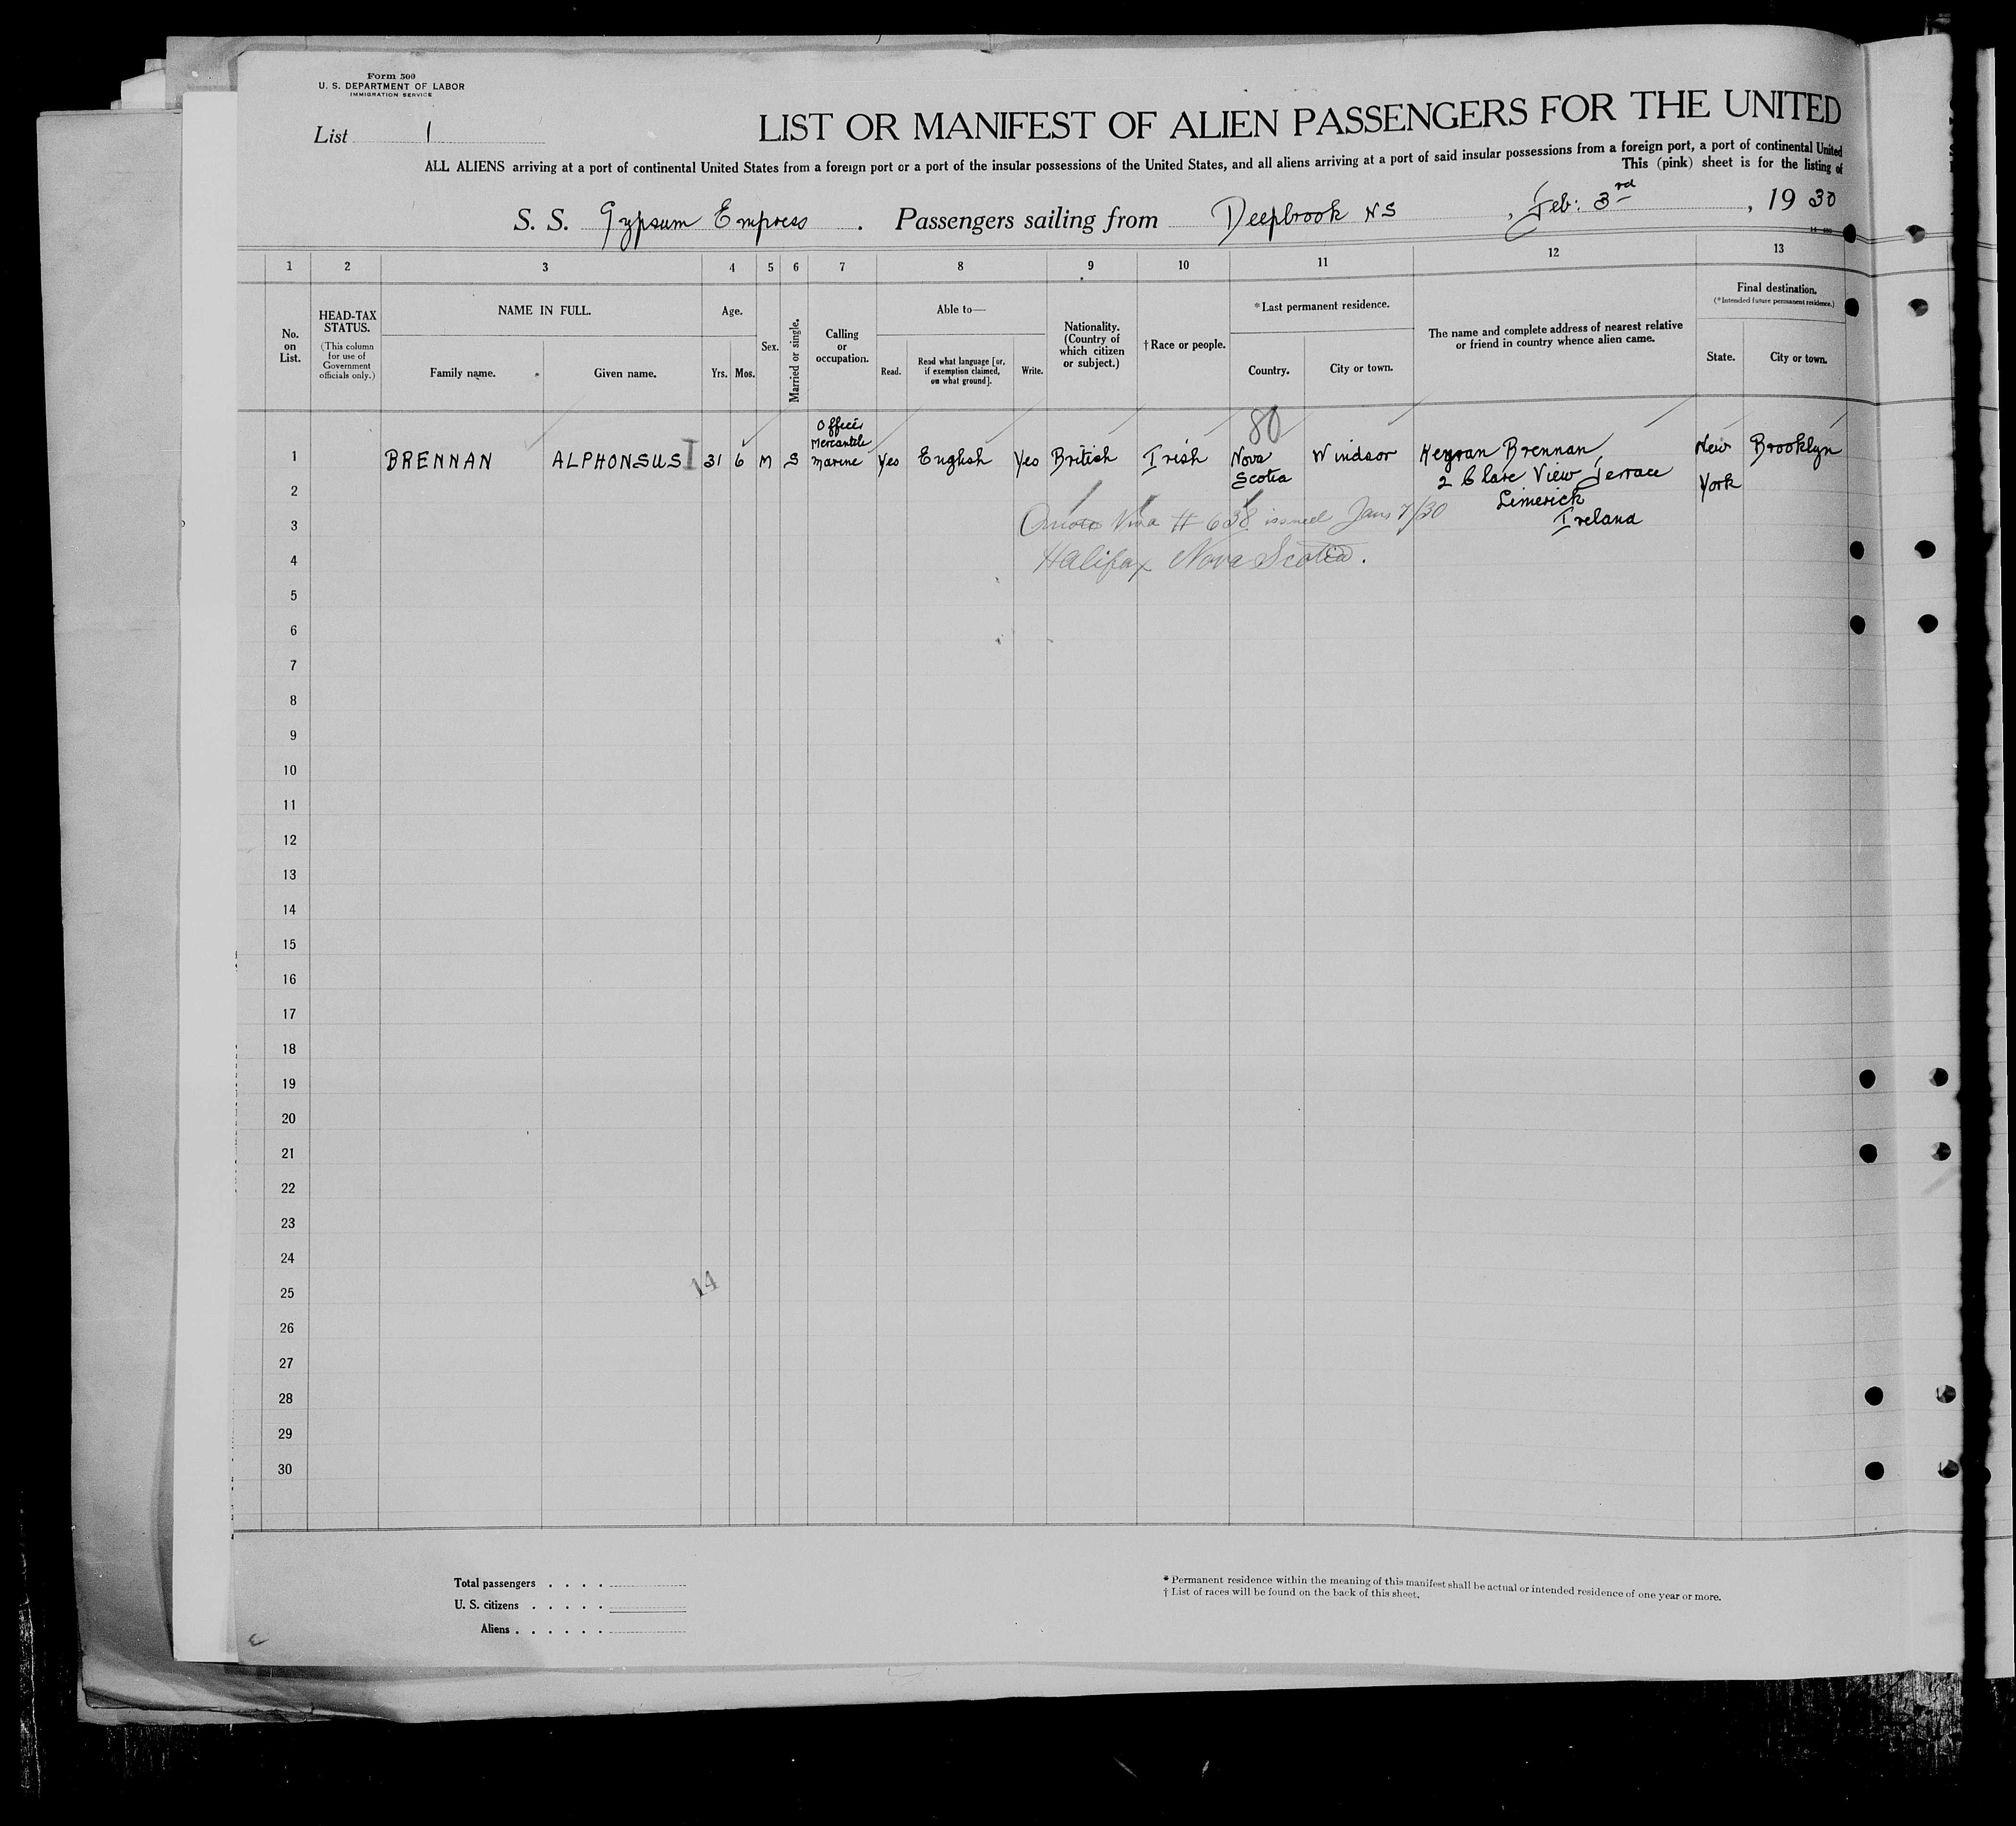 Form 500
U. S. DEPARTMENT OF LABOR
IMMIGRATION SERVICE
List 1
LIST OR MANIFEST OF ALIEN PASSENGERS FOR THE UNITED
ALL ALIENS arriving at a port of continental United States from a foreign port or a port of the insular possessions of the United States, and all aliens arriving at a port of said insular possessions from a foreign port, a port of continental United
This (pink) sheet is for the listing of
S. S. Gypsum Empress . Passengers sailing from Deepbrook NS , Feb: 3rd , 19 30
1 2 3 4 5 6 7 8 9 10 11 12 13
No. on List.
HEAD-TAX STATUS.
(This column for use of Government officials only.)
NAME IN FULL.
Family name.
Given name.
Age.
Yrs. Mos.
Sex.
Married or single.
Calling or occupation.
Able to—
Read.
Read what language [or, if exemption claimed, on what ground].
Write.
Nationality. (Country of which citizen or subject.)
† Race or people.
* Last permanent residence.
Country.
City or town.
The name and complete address of nearest relative or friend in country whence alien came.
Final destination.
(* Intended future permanent residence.)
State.
City or town.
80
Officer
Mercantile
1 BRENNAN ALPHONSUS I 31 6 M S Marine Yes English Yes British Irish Nova Windsor Brennan, New Brooklyn
Scotia 2 Clare View Terrace York
Limerick
Ireland
Visa # 638 issued Jan 7/30
Halifax Nova Scotia.
2
3
4
5
6
7
8
9
10
11
12
13
14
15
16
17
18
19
20
21
22
23
24
14
25
26
27
28
29
30
Total passengers . . . .
U. S. citizens . . . . .
Aliens . . . . . .
* Permanent residence within the meaning of this manifest shall be actual or intended residence of one year or more.
† List of races will be found on the back of this sheet.